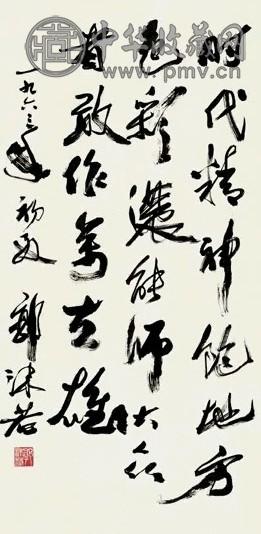 中华收藏网
www.pmv.cn
时代精神饱地方
色彩濃能师大众
者敢作萬夫雄
一九六三年初夏 郭沫若